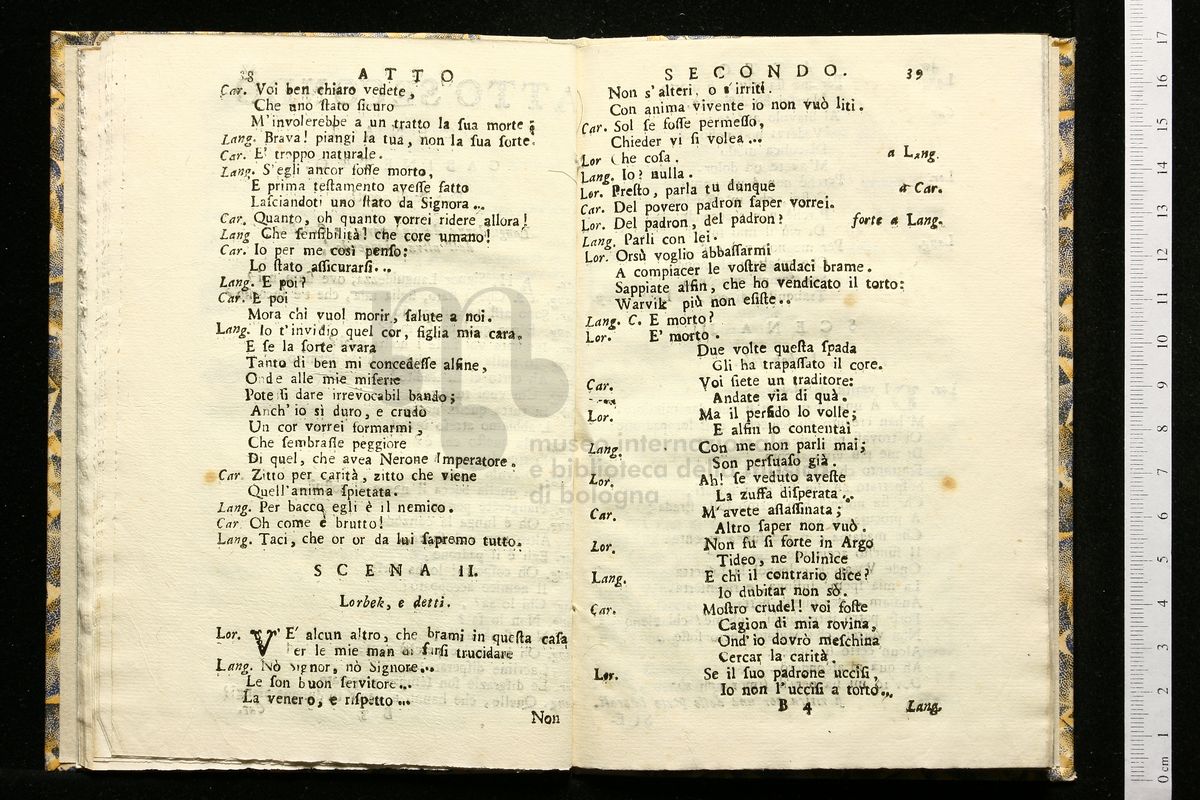 38 ATTO
Car. Voi ben chiaro vedete,
Che uno ſtato ſicuro
M'involerebbe a un tratto la ſua morte;
Lang. Brava! piangi la tua, non la ſua ſorte.
Car. E' troppo naturale.
Lang. S'egli ancor foſſe morto,
E prima teſtamento aveſſe fatto
Laſciandoti uno ſtato da Signora...
Car. Quanto, oh quanto vorrei ridere allora!
Lang Che ſenſibilità! che core umano!
Car. Io per me così penſo:
Lo ſtato aſſicurarſi...
Lang. E poi?
Car. E poi
Mora chi vuol morir, ſalute a noi.
Lang. Io t'invidio quel cor, figlia mia cara.
E ſe la ſorte avara
Tanto di ben mi concedeſſe alfine,
Onde alle mie miſerie
Poteſſi dare irrevocabil bando;
Anch'io sì duro, e crudo
Un cor vorrei formarmi,
Che ſembraſſe peggiore
Di quel, che avea Nerone Imperatore.
Car. Zitto per carità, zitto che viene
Quell'anima ſpietata.
Lang. Per bacco egli è il nemico.
Car. Oh come è brutto!
Lang. Taci, che or or da lui ſapremo tutto.
SCENA II.
Lorbek, e detti.
Lor. V' E' alcun altro, che brami in queſta caſa
Per le mie man di farſi trucidare
Lang. Nò Signor, nò Signore...
Le ſon buon ſervitore...
La venero, e riſpetto...
Non
SECONDO. 39
Non s'alteri, o s'irriti.
Con anima vivente io non vuò liti.
Car. Sol ſe foſſe permeſſo,
Chieder vi ſi volea...
Lor Che coſa. a Lang.
Lang. Io? nulla.
Lor. Preſto, parla tu dunque a Car.
Car. Del povero padron ſaper vorrei.
Lor. Del padron, del padron? forte a Lang.
Lang. Parli con lei.
Lor. Orsù voglio abbaſſarmi
A compiacer le voſtre audaci brame.
Sappiate alfin, che ho vendicato il torto:
Warvik più non eſiſte..
Lang. C. E morto?
Lor. E' morto.
Due volte queſta ſpada
Gli ha trapaſſato il core.
Car. Voi ſiete un traditore:
Andate via di quà.
Lor. Ma il perfido lo volle;
E alfin lo contentai
Lang. Con me non parli mai;
Son perſuaſo già.
Lor. Ah! ſe veduto aveſte
La zuffa diſperata...
Car. M'avete aſſaſſinata;
Altro ſaper non vuò.
Lor. Non fu ſi forte in Argo
Tideo, ne Polinìce
Lang. E chi il contrario dice?
Io dubitar non sò.
Car. Moſtro crudel! voi foſte
Cagion di mia rovina,
Ond'io dovrò meſchina
Cercar la carità.
Lor. Se il ſuo padrone ucciſi,
Io non l'ucciſi a torto...
B 4 Lang.
museo internazionale
e biblioteca della musica
di bologna
0 cm 1 2 3 4 5 6 7 8 9 10 11 12 13 14 15 16 17